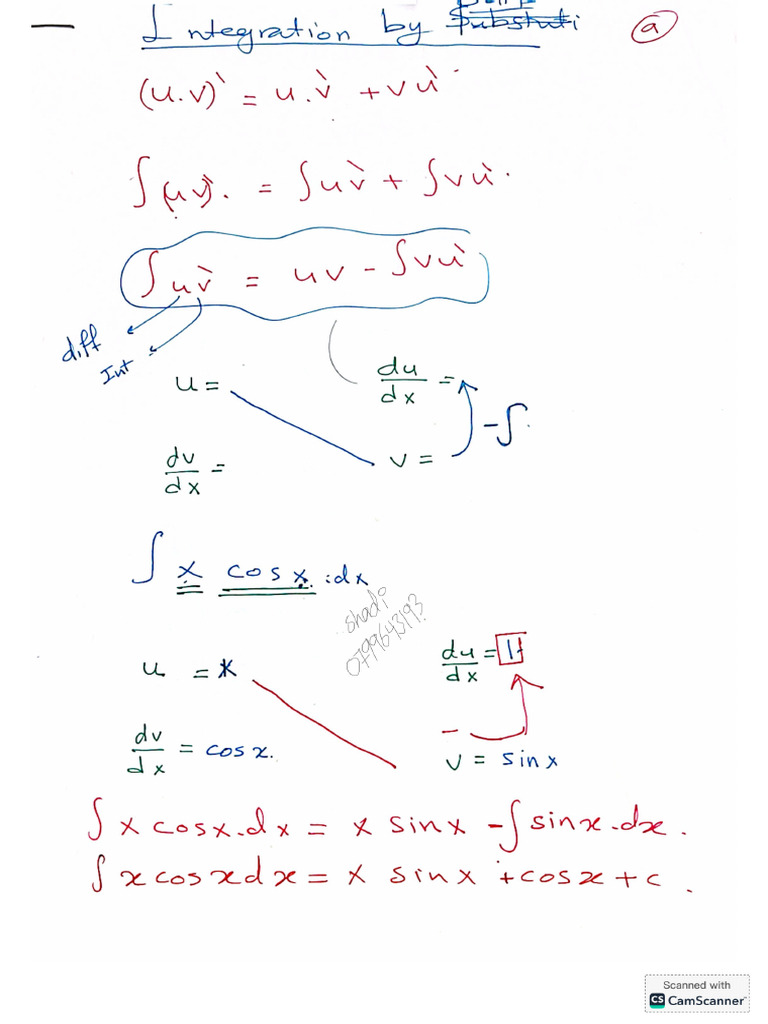 Integration by Substuti
ⓐ
(u.v)` = u.v` + vu`
∫(uv)`. = ∫uv` + ∫vu`.
∫uv` = uv - ∫vu`
diff
Int
u = du/dx =
-∫
dv/dx = v =
∫ x cos x .dx
shadi
0799643193
u = x du/dx = 1
-
dv/dx = cos x. v = sin x
∫ x cos x.dx = x sin x - ∫ sin x.dx.
∫ x cos x dx = x sin x + cos x + c.
Scanned with
CS CamScanner